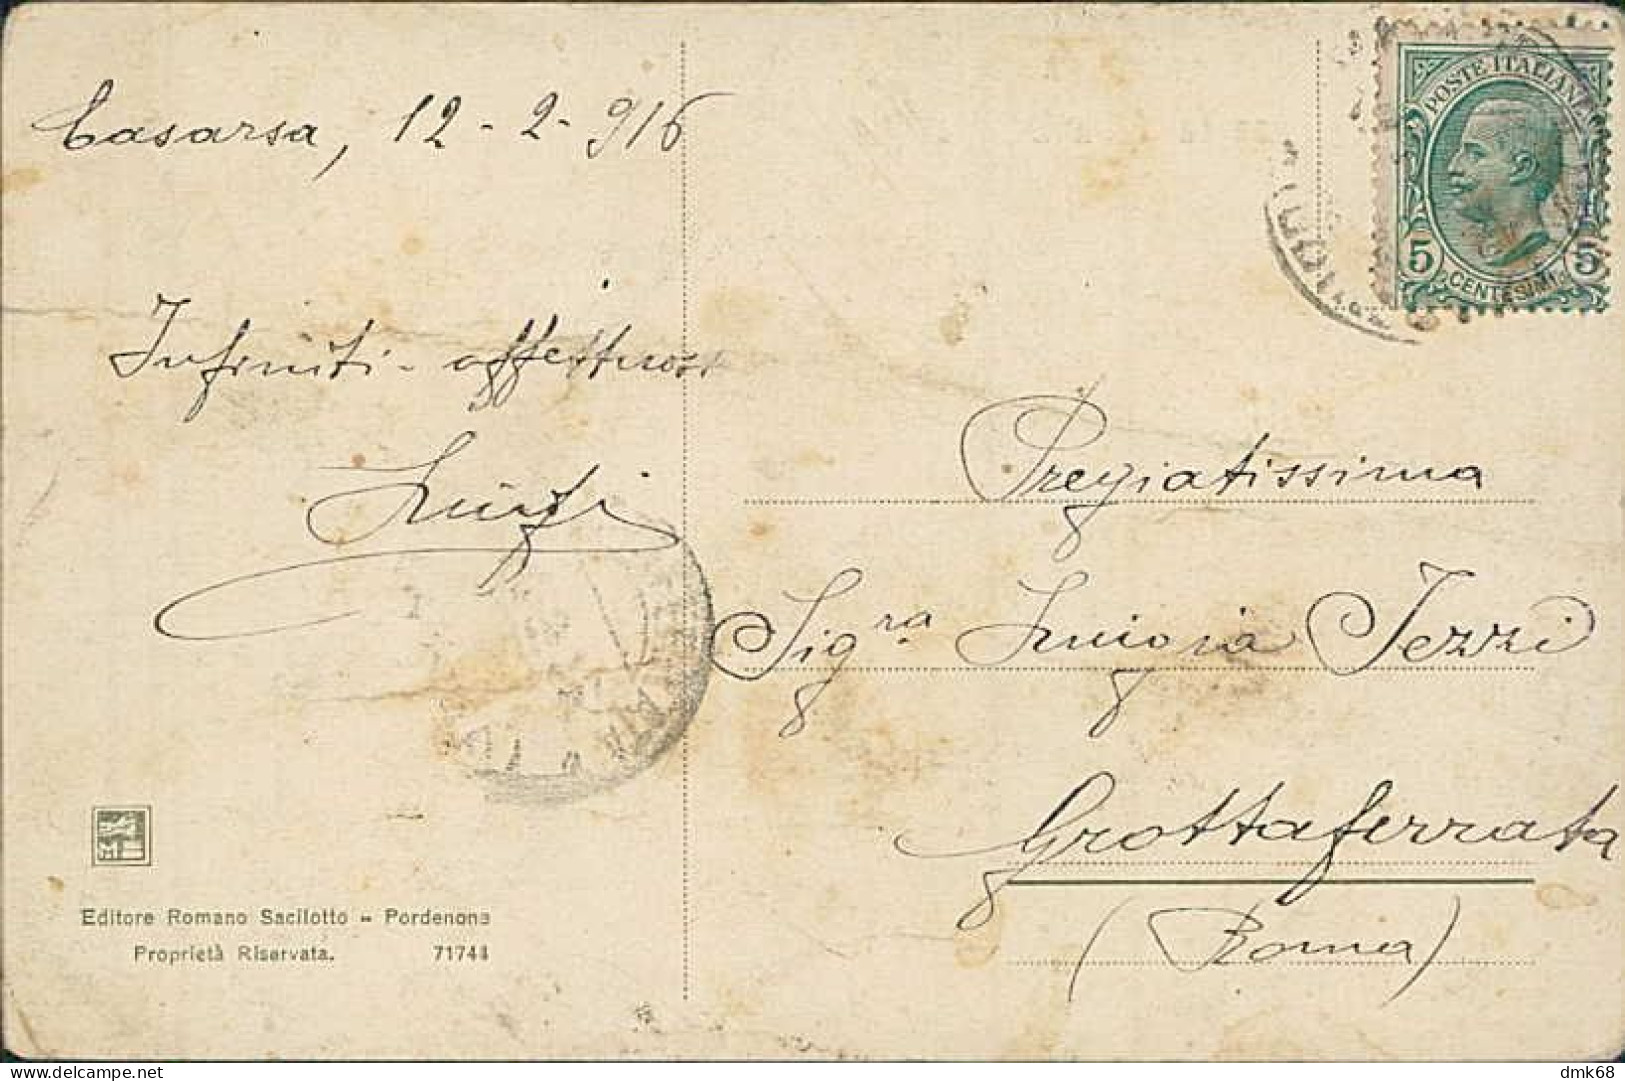 Casarsa, 12-2-916
POSTE ITALIANE
5 5
CENTESIMI
Infiniti - affettuosi
Luigi
Pregiatissima
Sig.ra Luigia Tezzi
Grottaferrata
(Roma)
Editore Romano Sacilotto - Pordenone
Proprietà Riservata. 71744
delcampe.net
dmk68